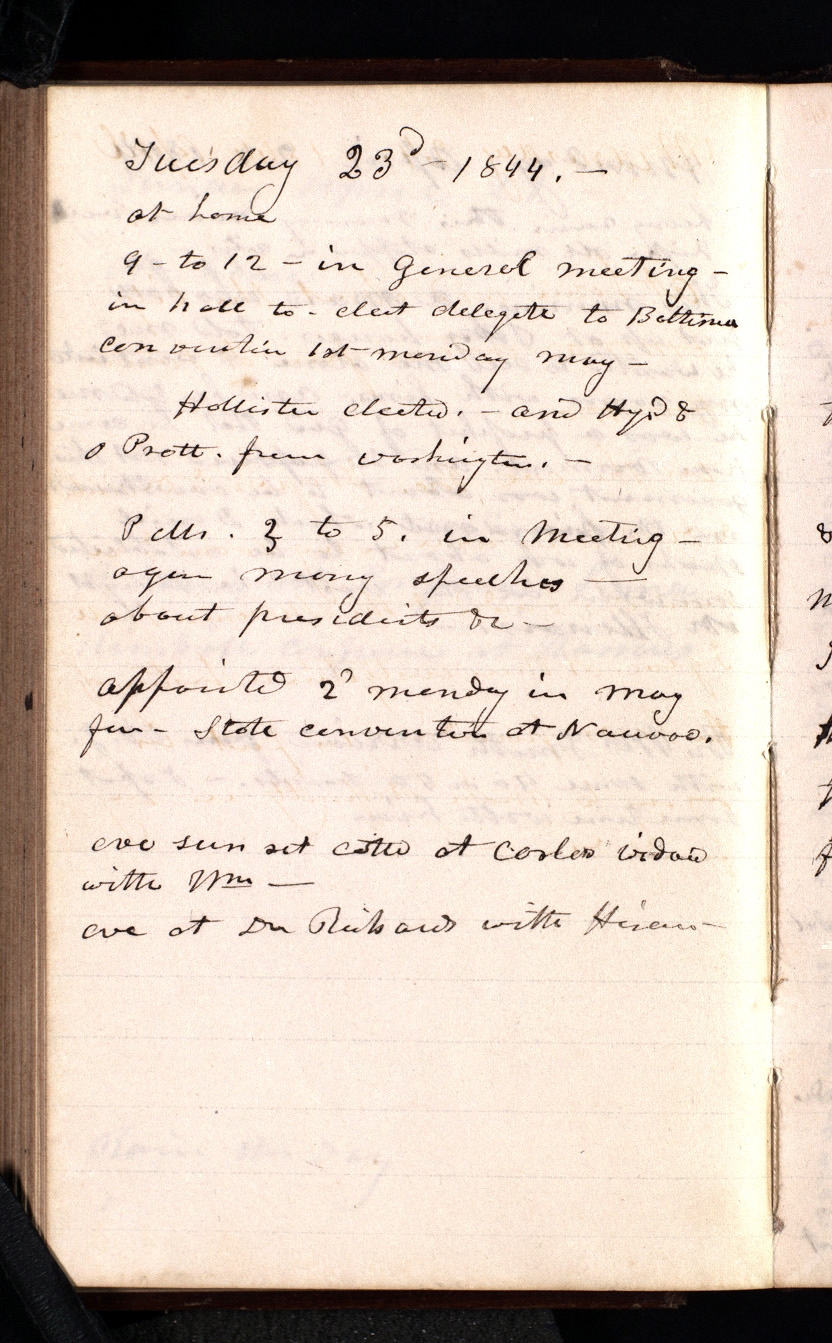 Tuesday 23d - 1844. -
at home
9 - to 12 - in General meeting -
in hall to - elect delegate to Baltimore
convention 1st monday may -
Hollister elected. - and Hyd &
O Pratt. from washington. -
P.M. 2 to 5. in Meeting -
again many speeches -
about presidents &c -
appointed 2d monday in may
for - State convention at Nauvoo.
eve sun set at
with Wm -
eve at Dr Richards with Hiram -